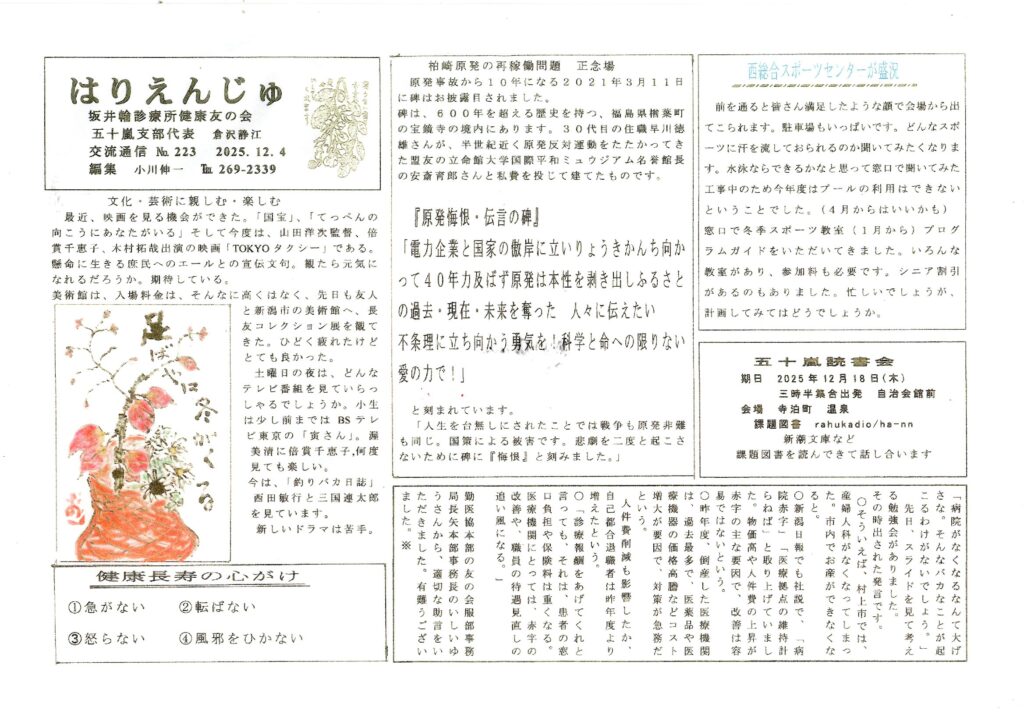 はりえんじゅ
坂井輪診療所健康友の会
五十嵐支部代表 倉沢静江
交流通信 № 223 2025.12.4
編集 小川伸一 ℡ 269-2339
文化・芸術に親しむ・楽しむ
最近、映画を見る機会ができた。「国宝」、「てっぺんの
向こうにあなたがいる」そして今度は、山田洋次監督、倍
賞千恵子、木村拓哉出演の映画「TOKYOタクシー」である。
懸命に生きる庶民へのエールとの宣伝文句。観たら元気に
なれるだろうか。期待している。
美術館は、入場料金は、そんなに高くはなく、先日も友人
と新潟市の美術館へ、長
友コレクション展を観て
きた。ひどく疲れたけど
とても良かった。
土曜日の夜は、どんな
テレビ番組を見ていらっ
しゃるでしょうか。小生
は少し前までは BSテレ
ビ東京の「寅さん」。渥
美清に倍賞千恵子,何度
見ても楽しい。
今は、「釣りバカ日誌」
西田敏行と三国連太郎
を見ています。
新しいドラマは苦手。
健康長寿の心がけ
①急がない ②転ばない
③怒らない ④風邪をひかない
柏崎原発の再稼働問題 正念場
原発事故から10年になる2021年3月11日
に碑はお披露目されました。
碑は、600年を超える歴史を持つ、福島県楢葉町
の宝鏡寺の境内にあります。30代目の住職早川徳
雄さんが、半世紀近く原発反対運動をたたかってき
た盟友の立命館大学国際平和ミュウジアム名誉館長
の安斎育郎さんと私費を投じて建てたものです。
『原発悔恨・伝言の碑』
「電力企業と国家の傲岸に立いりょうきかんち向か
って40年力及ばず原発は本性を剥き出しふるさと
の過去・現在・未来を奪った 人々に伝えたい
不条理に立ち向かう勇気を!科学と命への限りない
愛の力で!」
と刻まれています。
「人生を台無しにされたことでは戦争も原発非難
も同じ。国策による被害です。悲劇を二度と起こさ
ないために碑に『悔恨』と刻みました。」
西総合スポーツセンターが盛況
前を通ると皆さん満足したような顔で会場から出
てこられます。駐車場もいっぱいです。どんなスポー
ツに汗を流しておられるのか聞いてみたくなりま
す。水泳ならできるかなと思って窓口で聞いてみた
工事中のため今年度はプールの利用はできない
ということでした。(4月からはいいかも)
窓口で冬季スポーツ教室(1月から)プログ
ラムガイドをいただいてきました。いろんな
教室があり、参加料も必要です。シニア割引
があるのもありました。忙しいでしょうが、
計画してみてはどうでしょうか。
五十嵐読書会
期日 2025年12月18日(木)
三時半集合出発 自治会館前
会場 寺泊町 温泉
課題図書 rahukadio/ha-nn
新潮文庫など
課題図書を読んできて話し合います
「病院がなくなるなんて大げ
さな。そんなバカなことが起
こるわけがないでしょう。」
先日、スライドを見て考え
る勉強会がありました。
その時出された発言です。
○そういえば、村上市では、
産婦人科がなくなってしまっ
た。市内でお産ができなくな
ると。
○新潟日報でも社説で、「病
院赤字」「医療拠点の維持計
らねば」と取り上げていまし
た。物価高や人件費の上昇が
赤字の主な要因で、改善は容
易ではないという。
○昨年度、倒産した医療機関
は、過去最多で、医薬品や医
療機器の価格高騰などコスト
増大が要因で、対策が急務だ
という。
人件費削減も影響したか、
自己都合退職者は昨年度より
増えたという。
○「診療報酬をあげてくれと
言っても、それは、患者の窓
口負担や保険料は重くなる。
医療機関にとっては、赤字の
改善や、職員の待遇見直しの
追い風になる。」
勤医協本部の友の会服部事務
局長矢本部事務長のいしいゆ
うさんから、適切な助言をい
ただきました。有難うござい
ました。※